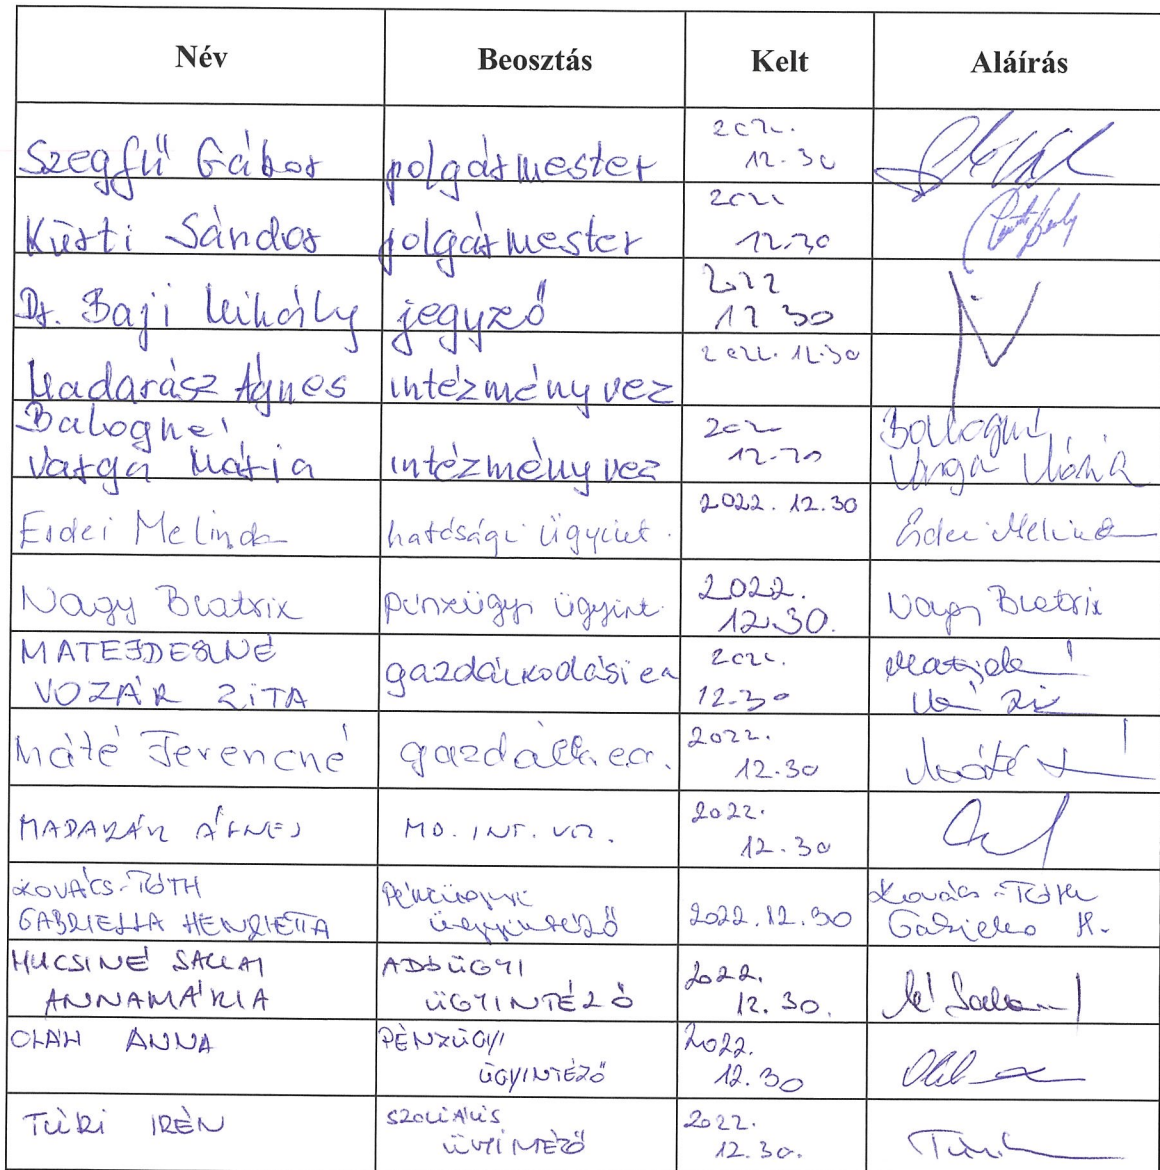 Név Beosztás Kelt Aláírás
Szegfű Gábor polgármester 2022. 12.30
Kürti Sándor polgármester 2022 12.30
Dr. Baji Mihály jegyző 2022 12 30
Madarász Ágnes intézményvez 2022. 12.30
Balogné
Varga Mária intézményvez 2022 12.30 Balogné Varga Mária
Erdei Melinda hatósági ügyint. 2022. 12.30 Erdei Melinda
Nagy Beatrix pénzügyi ügyint. 2022. 12.30. Nagy Beatrix
MATEJDESZNÉ
VOZÁR ZITA gazdálkodási ea 2022. 12.30
Máté Ferencné gazdálk. ea. 2022. 12.30 Máté
MADARÁSZ ÁGNES MO. INT. VEZ. 2022. 12.30
KOVÁCS-TÓTH
GABRIELLA HENRIETTA Pénzügyi ügyintéző 2022.12.30 Kovács-Tóth Gabriella H.
MUCSINÉ SALLAI
ANNAMÁRIA ADÓÜGYI ÜGYINTÉZŐ 2022. 12.30.
OLÁH ANNA PÉNZÜGYI ÜGYINTÉZŐ 2022. 12.30
TÜRI IRÉN SZOCIÁLIS ÜGYINTÉZŐ 2022. 12.30.